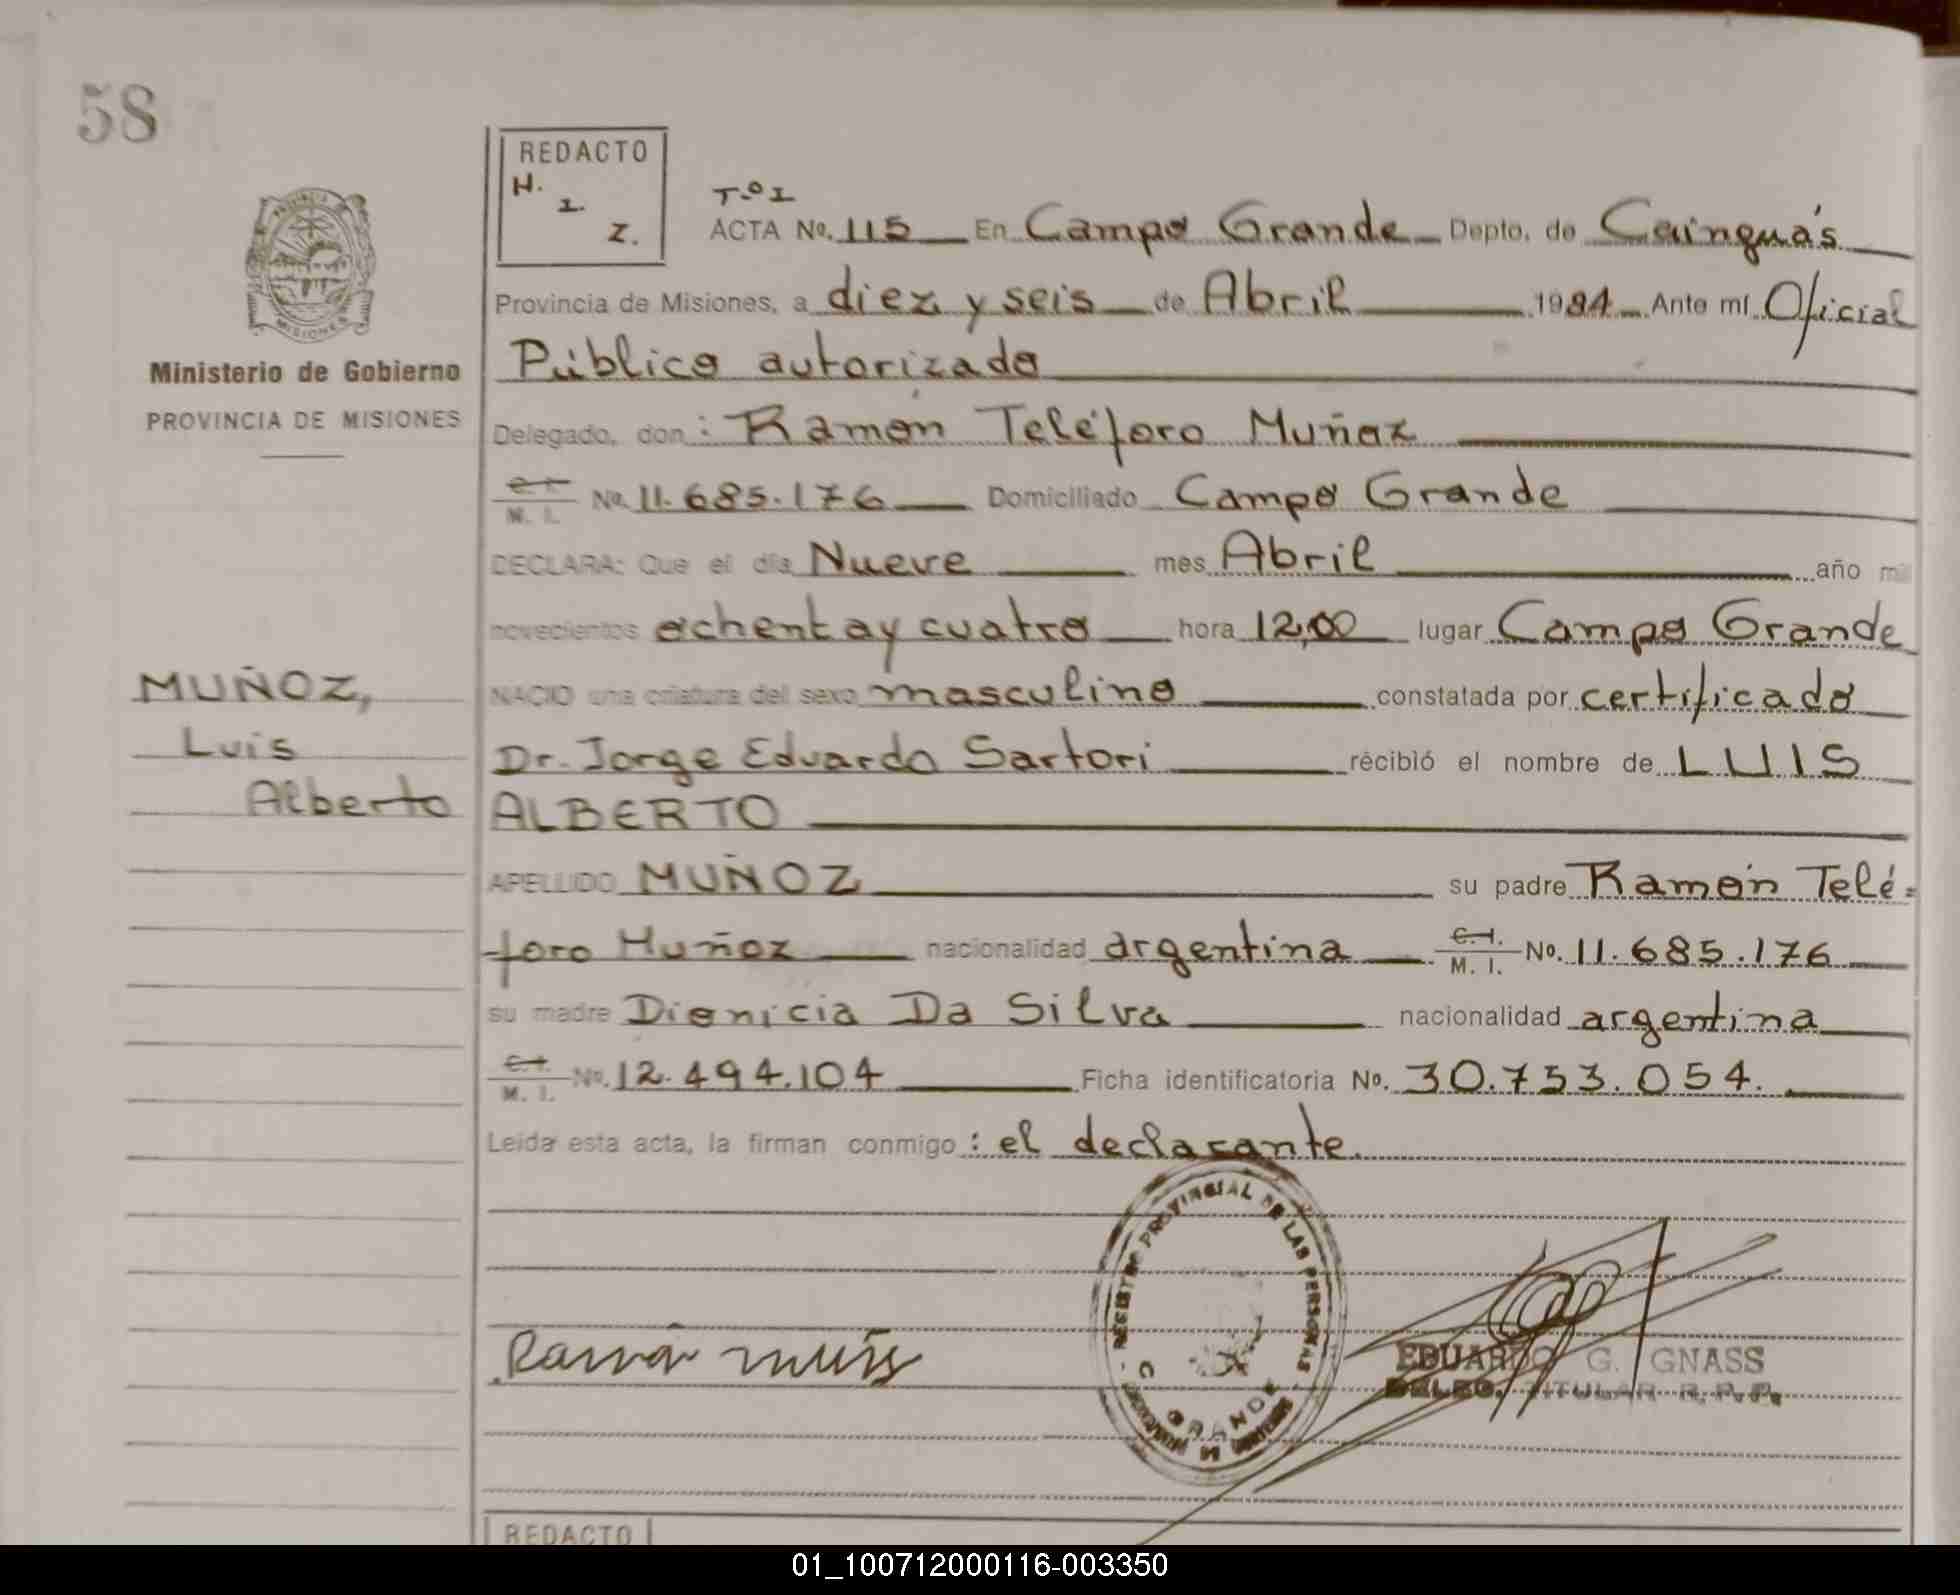 58
REDACTO
H.
I.
Z.
Tº I
ACTA No. 115 En Campo Grande Depto. de Cainguás
Provincia de Misiones, a diez y seis de Abril 1984 Ante mí Oficial
Público autorizado
Delegado, don: Ramón Teléforo Muñoz
C. I. / M. I. No. 11.685.176 Domiciliado Campo Grande
DECLARA: Que el día Nueve mes Abril año mil
novecientos ochenta y cuatro hora 12,00 lugar Campo Grande
NACIO una criatura del sexo masculino constatada por certificado
Dr. Jorge Eduardo Sartori recibió el nombre de LUIS
ALBERTO
APELLIDO MUÑOZ su padre Ramón Telé=
foro Muñoz nacionalidad argentina C. I. / M. I. No. 11.685.176
su madre Dionicia Da Silva nacionalidad argentina
C. I. / M. I. No. 12.494.104 Ficha identificatoria No. 30.753.054.
Leida esta acta, la firman conmigo: el declarante.
PROVINCIA
MISIONES
Ministerio de Gobierno
PROVINCIA DE MISIONES
MUÑOZ,
Luis
Alberto
REGISTRO PROVINCIAL DE LAS PERSONAS
C. GRANDE
EDUARDO G. GNASS
DELEG. TITULAR R. P. P.
REDACTO
01_100712000116-003350